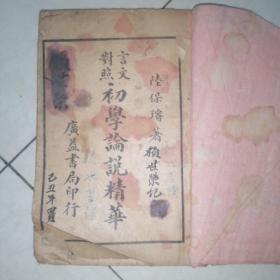 陸保璿著
賴世榮記
言文對照
初學論說精華
廣益書局印行
己丑年置